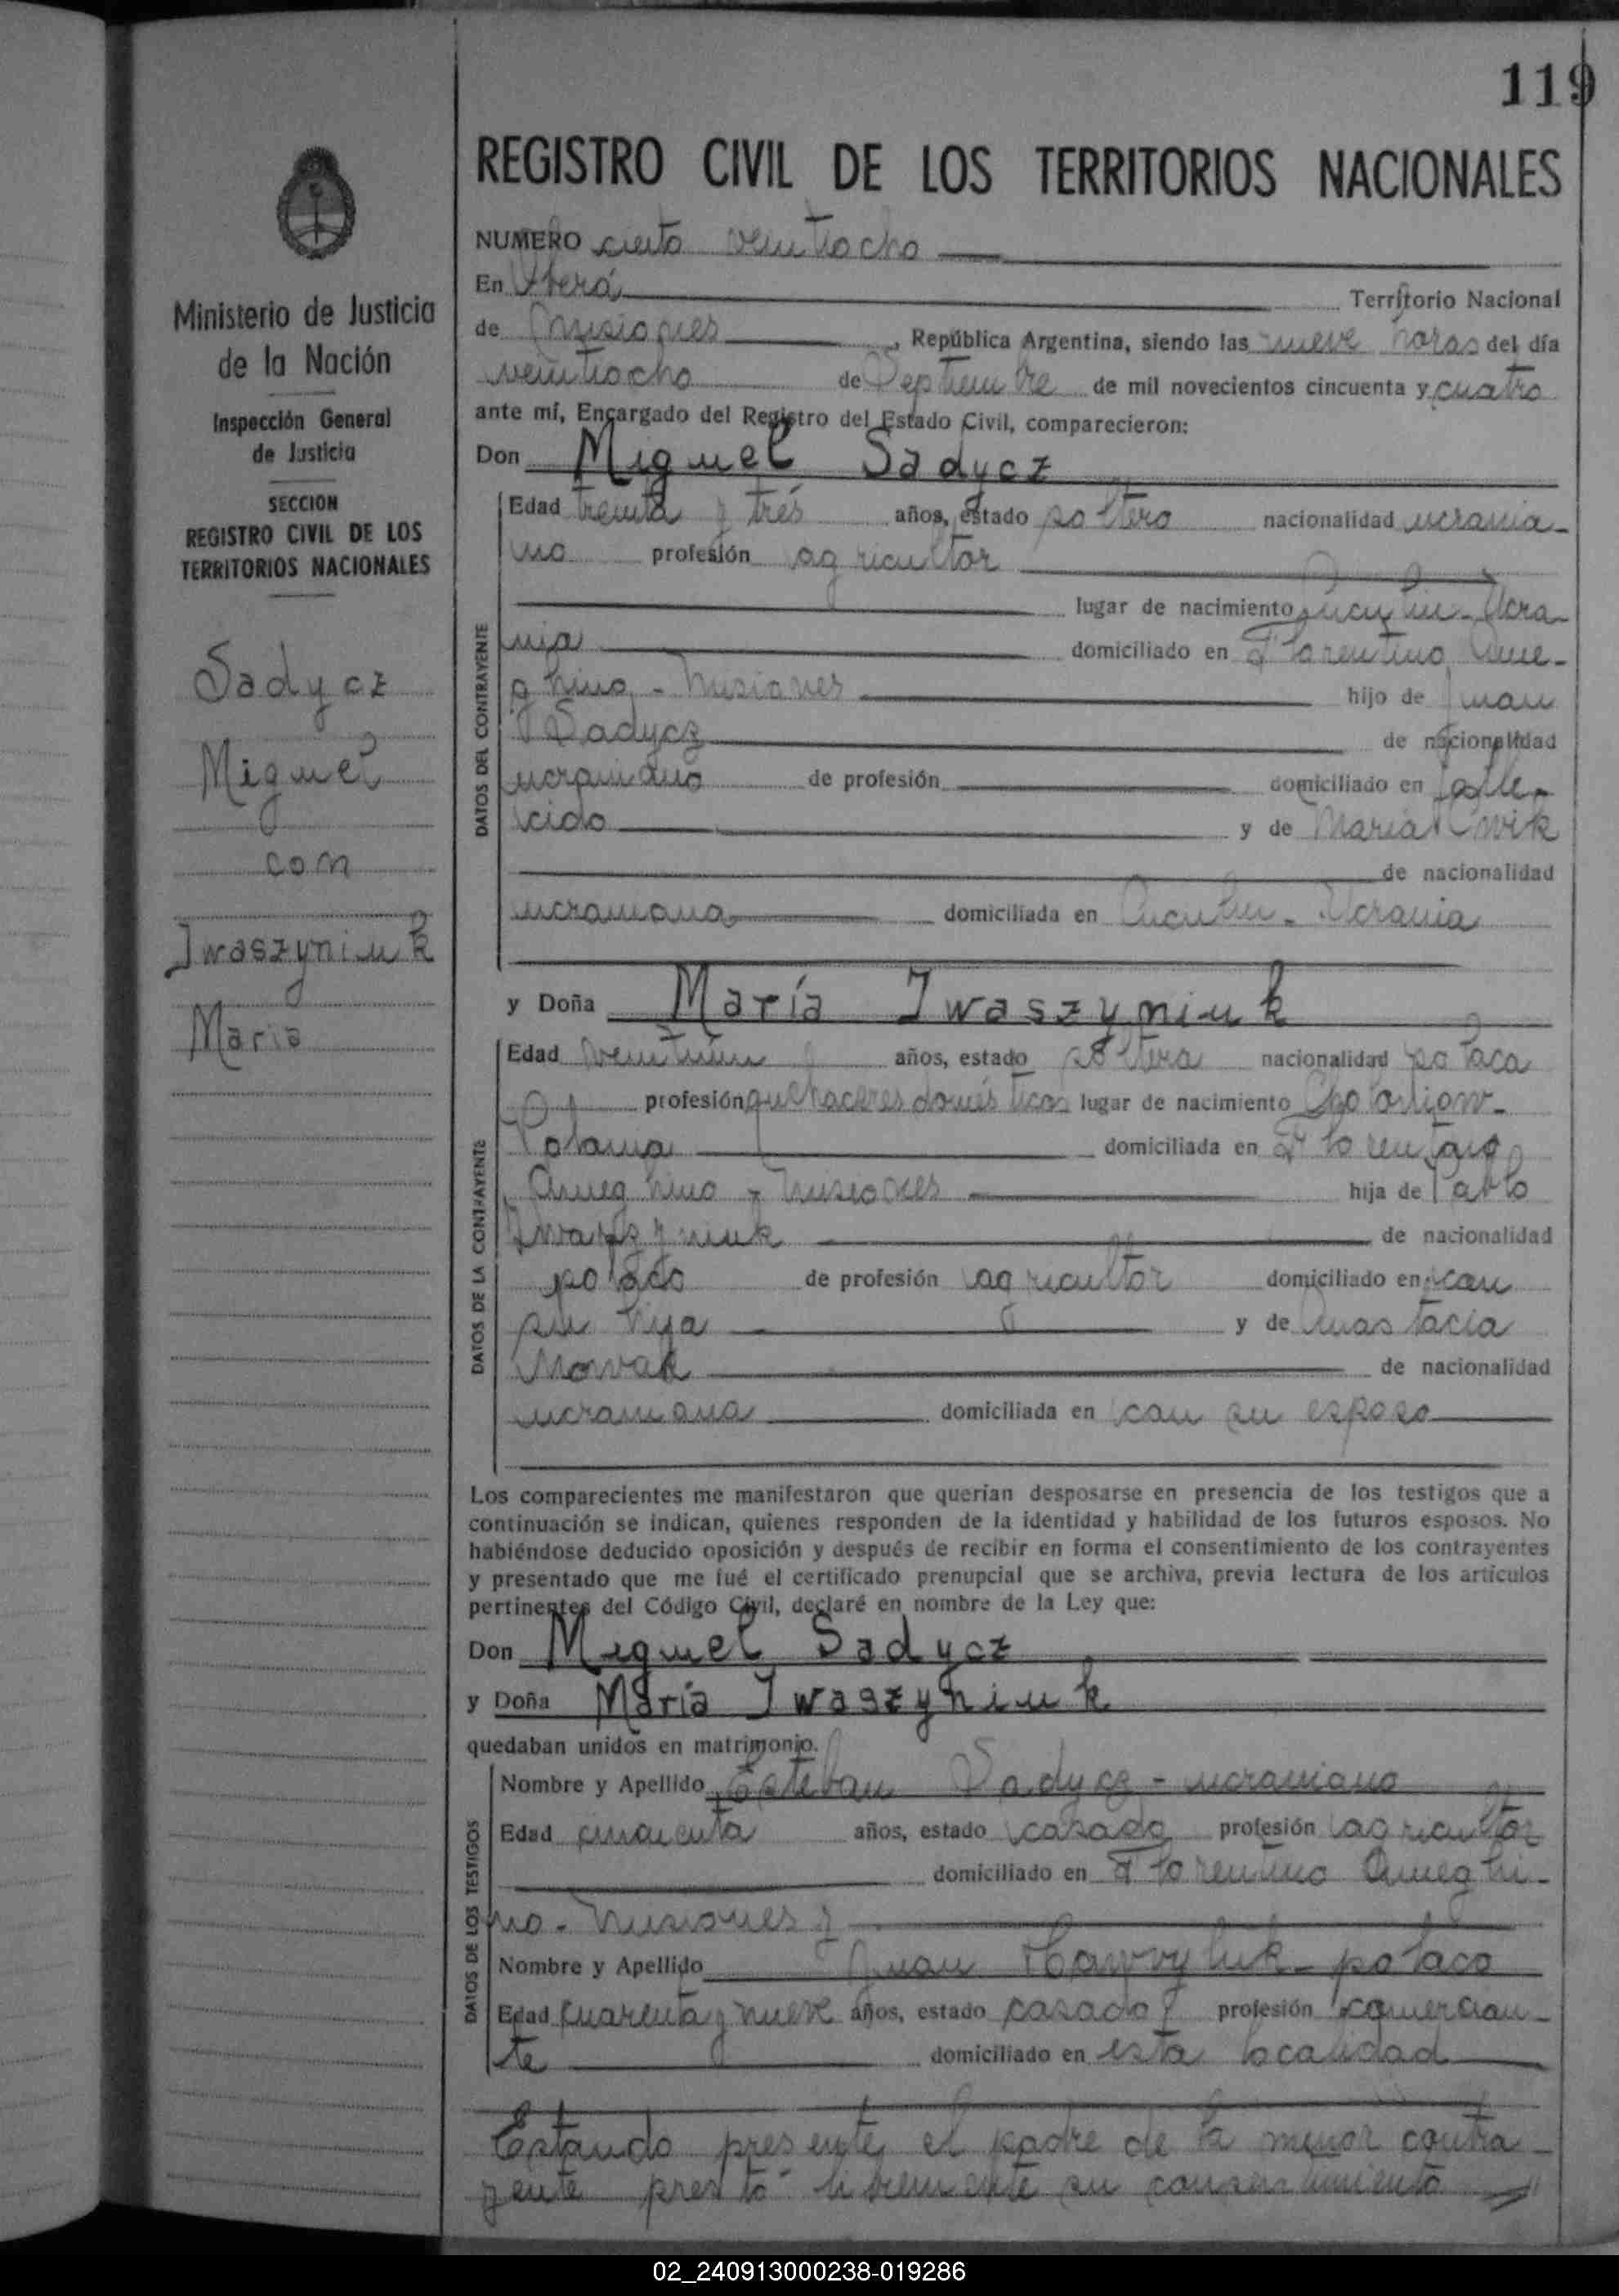 119
REGISTRO CIVIL DE LOS TERRITORIOS NACIONALES
Ministerio de Justicia
de la Nación
Inspección General
de Justicia
SECCION
REGISTRO CIVIL DE LOS
TERRITORIOS NACIONALES
Sadycz
Miguel
con
Iwaszyniuk
Maria
NUMERO ciento veintiocho
En Oberá Territorio Nacional
de Misiones, República Argentina, siendo las nueve horas del día
veintiocho de Septiembre de mil novecientos cincuenta y cuatro
ante mí, Encargado del Registro del Estado Civil, comparecieron:
Don Miguel Sadycz
DATOS DEL CONTRAYENTE
Edad treinta y trés años, estado soltero nacionalidad ucrania-
no profesión agricultor
lugar de nacimiento Ucra-
nia domiciliado en Florentino Ame-
ghino - Misiones hijo de Juan
Sadycz de nacionalidad
ucraniano de profesión domiciliado en falle-
cido y de María
de nacionalidad
ucraniana domiciliada en Ucrania
y Doña María Iwaszyniuk
DATOS DE LA CONTRAYENTE
Edad veintiún años, estado soltera nacionalidad polaca
profesión quehaceres domésticos lugar de nacimiento
Polonia domiciliada en Florentino
Ameghino - Misiones hija de Pablo
Iwaszyniuk de nacionalidad
polaco de profesión agricultor domiciliado en con
su hija y de Anastacia
Nowak de nacionalidad
ucraniana domiciliada en con su esposo
Los comparecientes me manifestaron que querían desposarse en presencia de los testigos que a
continuación se indican, quienes responden de la identidad y habilidad de los futuros esposos. No
habiéndose deducido oposición y después de recibir en forma el consentimiento de los contrayentes
y presentado que me fué el certificado prenupcial que se archiva, previa lectura de los artículos
pertinentes del Código Civil, declaré en nombre de la Ley que:
Don Miguel Sadycz
y Doña María Iwaszyniuk
quedaban unidos en matrimonio.
DATOS DE LOS TESTIGOS
Nombre y Apellido Esteban Sadycz - ucraniano
Edad cincuenta años, estado casado profesión agricultor
domiciliado en Florentino Ameghi-
no - Misiones y
Nombre y Apellido Juan Hawryluk - polaco
Edad cuarenta y nueve años, estado casado profesión comercian-
te domiciliado en esta localidad
Estando presente el padre de la menor contra-
yente prestó libremente su consentimiento
02_240913000238-019286